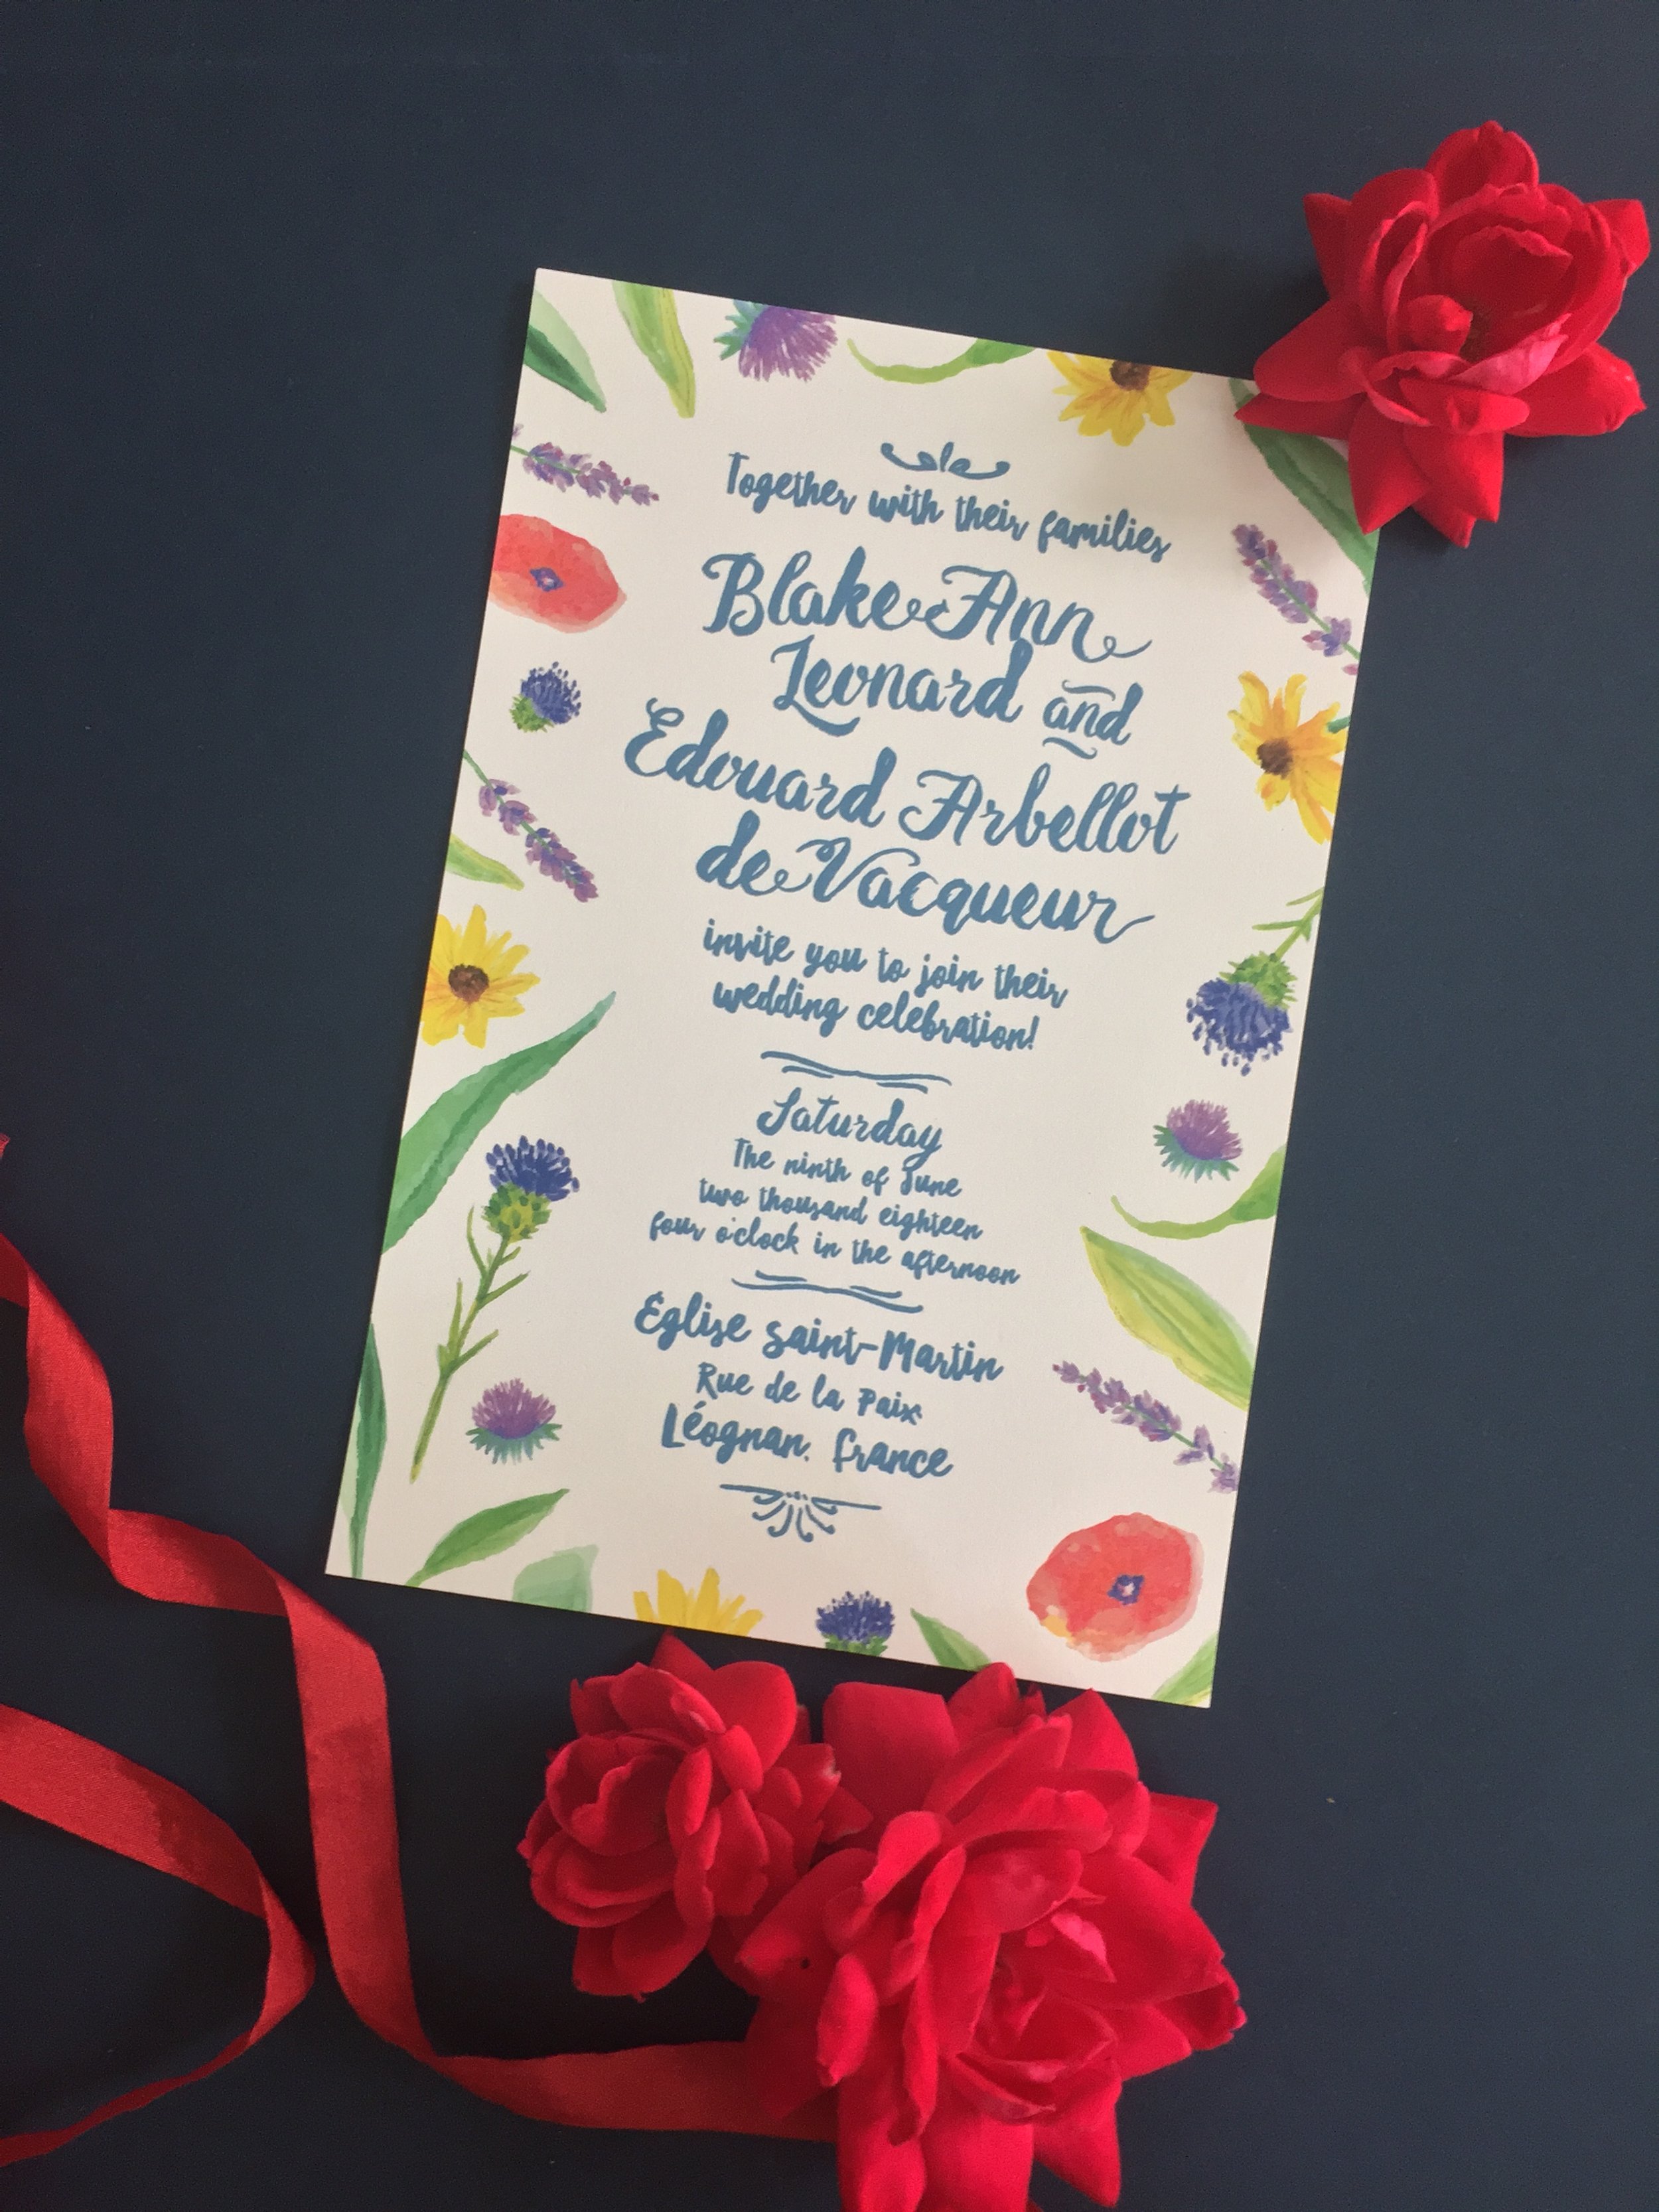 Together with their families
Blake Ann
Leonard and
Edouard Arbellot
de Vacqueur
invite you to join their
wedding celebration!
Saturday
The ninth of June
two thousand eighteen
four o'clock in the afternoon
Eglise Saint-Martin
Rue de la Paix
Léognan, France